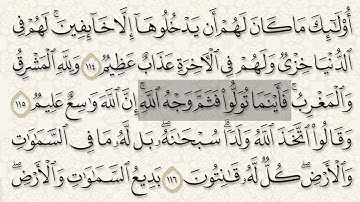 أُو۟لَـٰٓئِكَ مَا كَانَ لَهُمْ أَن يَدْخُلُوهَآ إِلَّا خَآئِفِينَ ۚ لَهُمْ فِى
ٱلدُّنْيَا خِزْىٌ وَلَهُمْ فِى ٱلْـَٔاخِرَةِ عَذَابٌ عَظِيمٌ ١١٤ وَلِلَّهِ ٱلْمَشْرِقُ
وَٱلْمَغْرِبُ ۚ فَأَيْنَمَا تُوَلُّوا۟ فَثَمَّ وَجْهُ ٱللَّهِ ۚ إِنَّ ٱللَّهَ وَٰسِعٌ عَلِيمٌ ١١٥
وَقَالُوا۟ ٱتَّخَذَ ٱللَّهُ وَلَدًا ۗ سُبْحَـٰنَهُۥ ۖ بَل لَّهُۥ مَا فِى ٱلسَّمَـٰوَٰتِ
وَٱلْأَرْضِ ۖ كُلٌّ لَّهُۥ قَـٰنِتُونَ ١١٦ بَدِيعُ ٱلسَّمَـٰوَٰتِ وَٱلْأَرْضِ ۖ